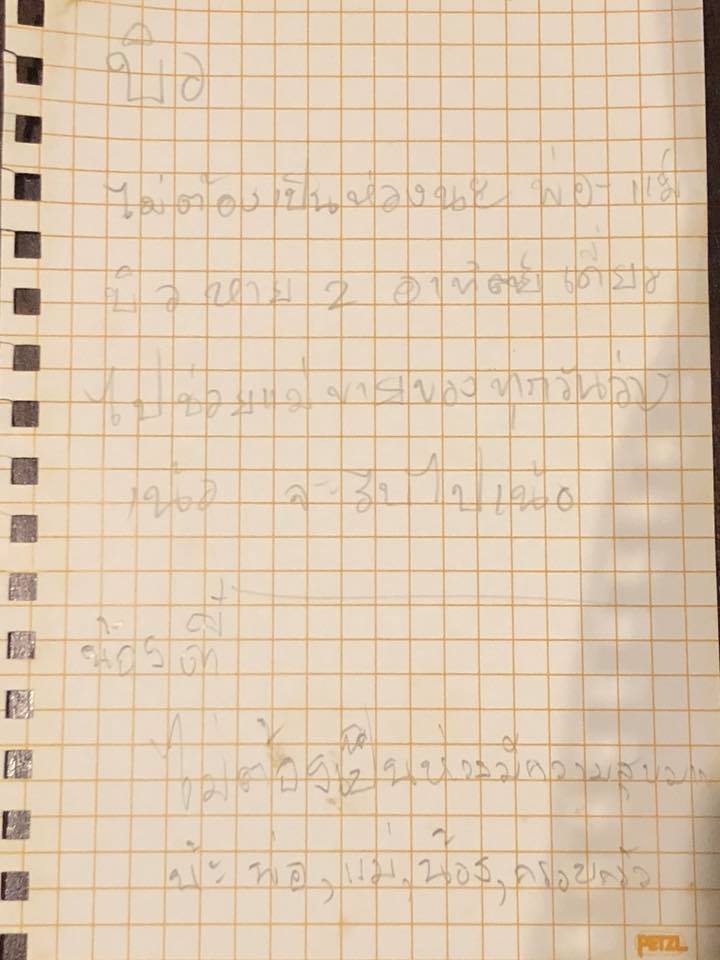 บิว
ไม่ต้องเป็นห่วงนะ พ่อ-แม่
บิว หาย 2 อาทิตย์ เดี๋ยว
ไปช่วยแม่ขายของทุกวัน
เน้อ จะรีบไปเน้อ
น้อง
ไม่ต้องเป็นห่วงมีความสุขมาก
พ่อ, แม่, น้อง, ครอบครัว
PETZL